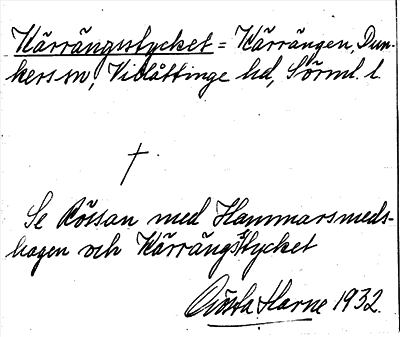 Kärrängsstycket = Kärrängen, Dun-
kers sn, Villåttinge hd, Sörml. l.
†
Se Rössan med Hammarsmeds-
hagen och Kärrängsstycket
Gösta Harne 1932.